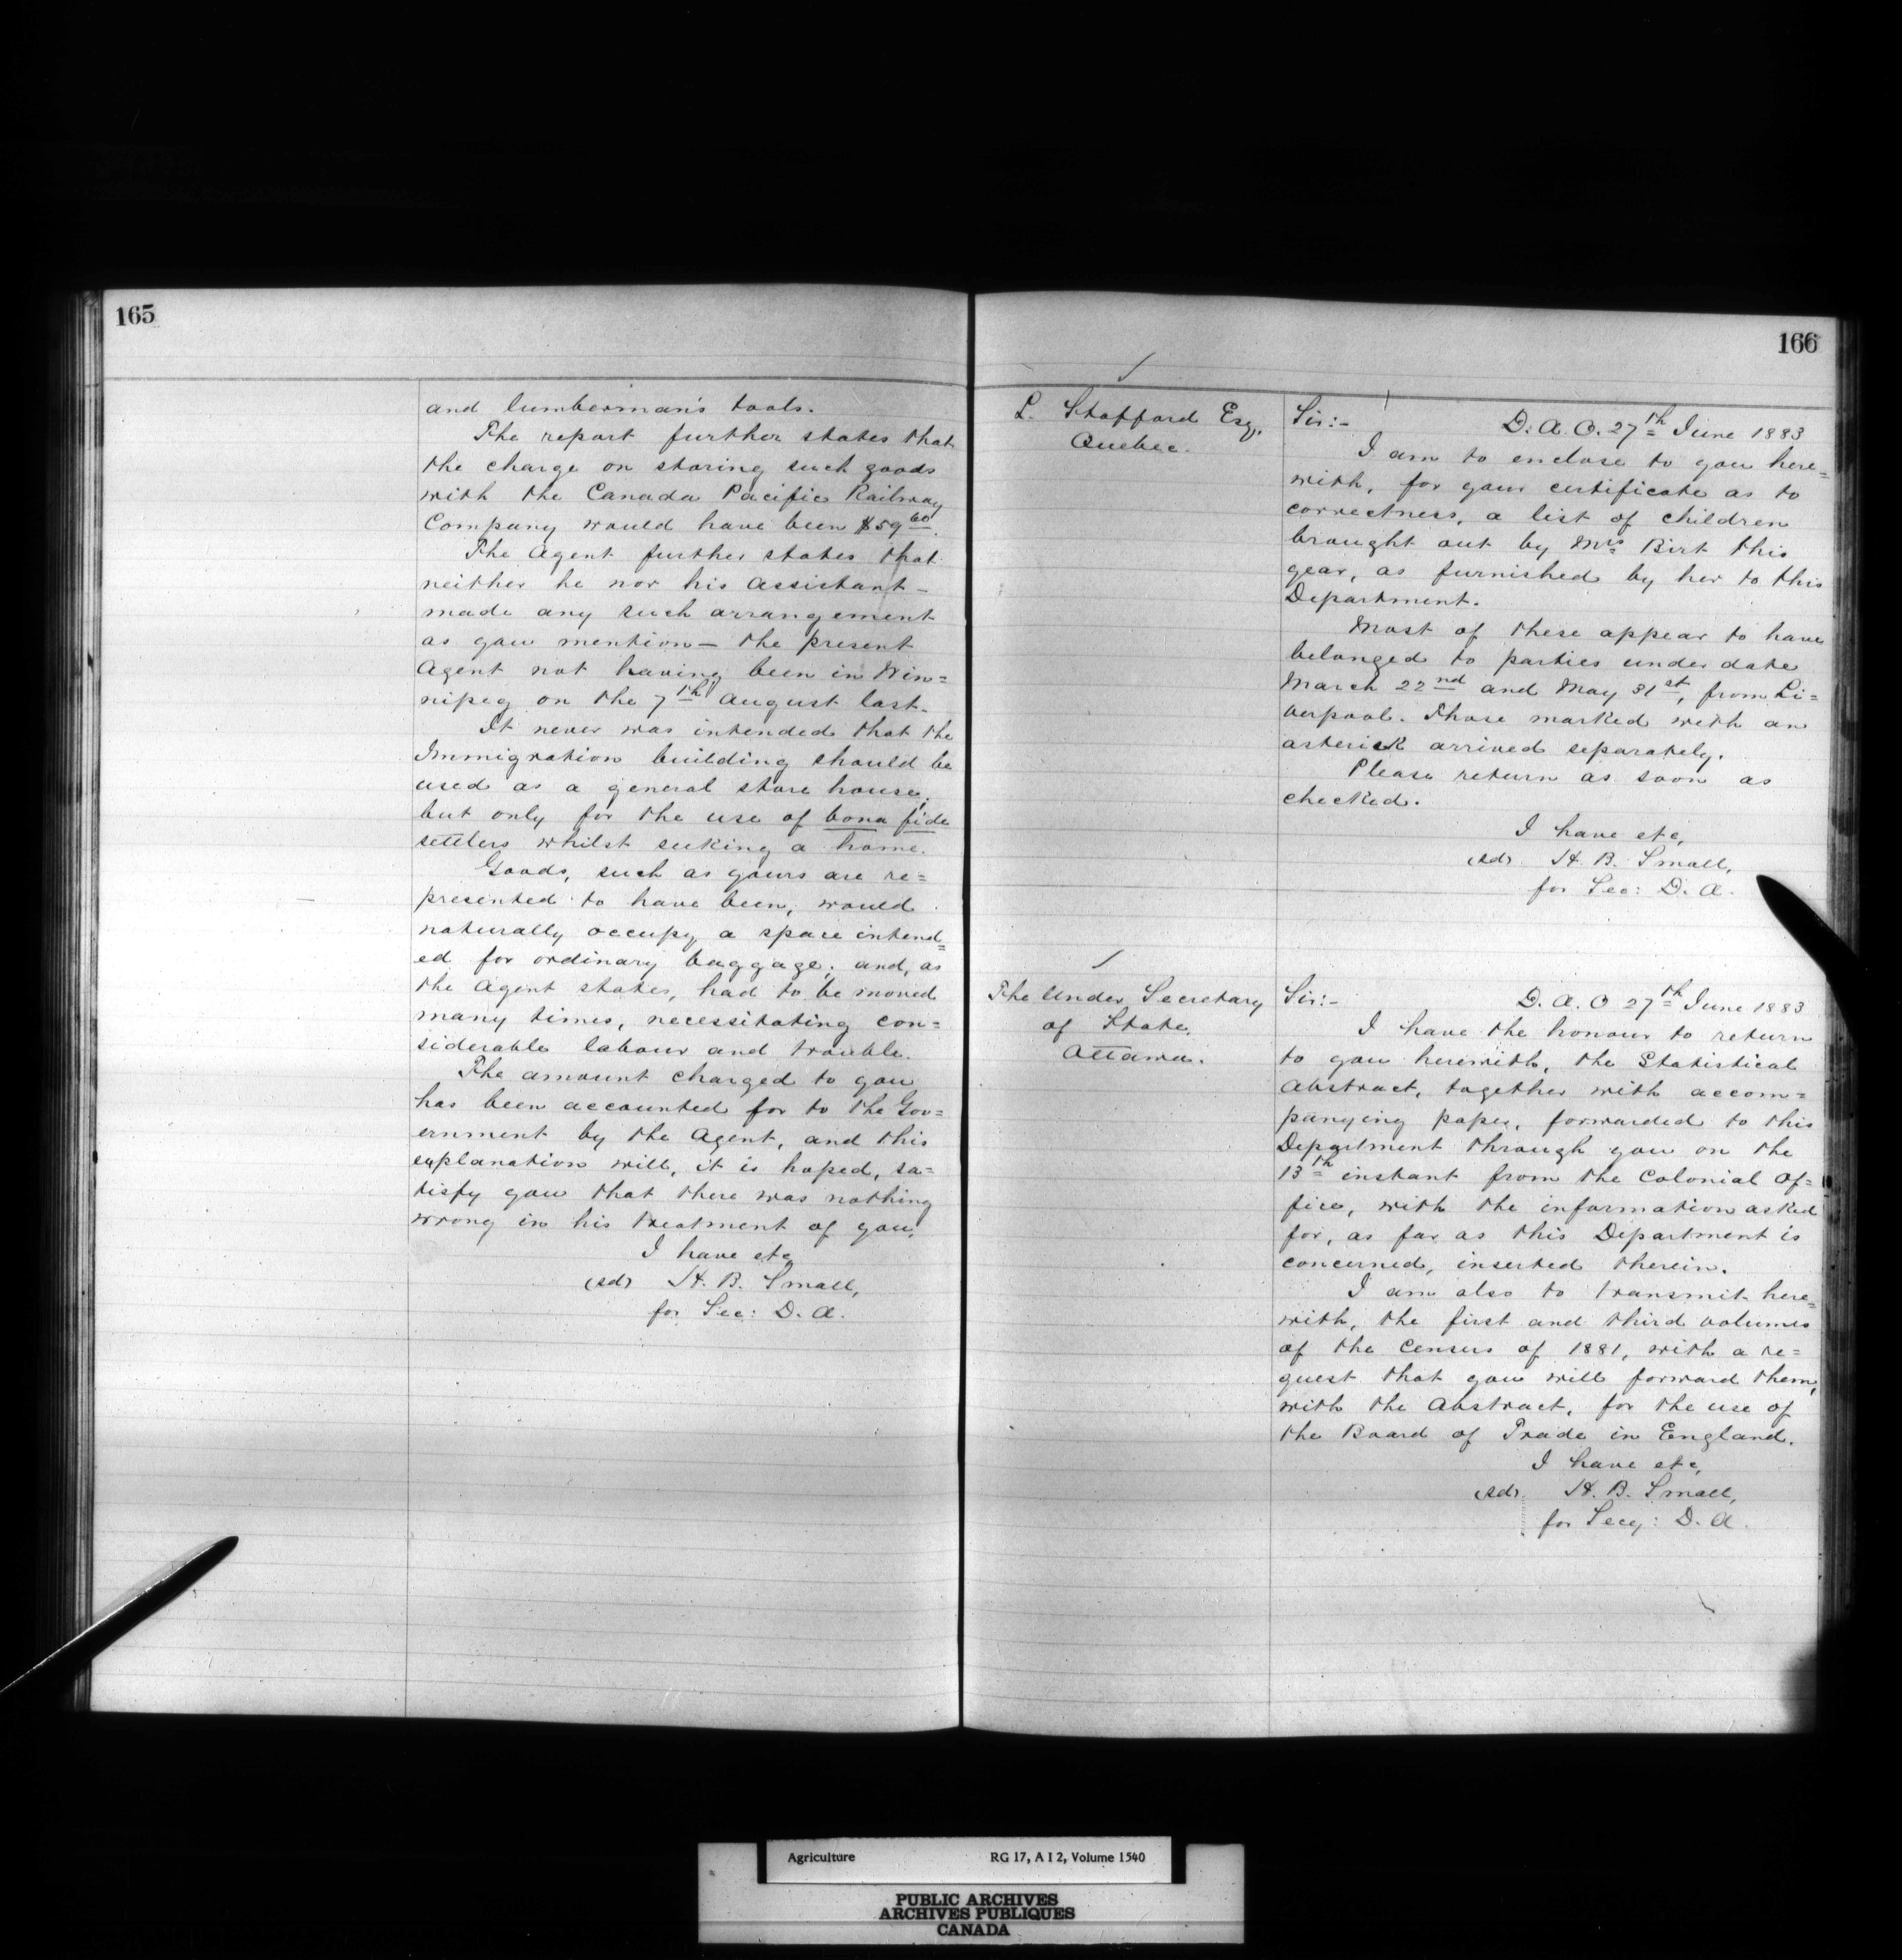 165
and lumberman's tools.
The report further states that
the charge on storing such goods
with the Canada Pacific Railway
Company would have been $59 60.
The Agent further states that
neither he nor his Assistant -
made any such arrangement
as you mention — the present
Agent not having been in Win=
nipeg on the 7th August last.
It never was intended that the
Immigration building should be
used as a general store house,
but only for the use of bona fide
settlers whilst seeking a home.
Goods, such as yours are re=
presented to have been, would
naturally occupy a space intend=
ed for ordinary baggage; and, as
the Agent states, had to be moved
many times, necessitating con=
siderable labour and trouble.
The amount charged to you
has been accounted for to the Gov=
ernment by the Agent, and this
explanation will, it is hoped, sa=
tisfy you that there was nothing
wrong in his treatment of you.
I have etc,
(sd) H. B. Small,
for Sec: D. A.
166
L. Stafford Esq.
Quebec.
Sir:- D. A. O. 27th June 1883
I am to enclose to you here=
with, for your certificate as to
correctness, a list of children
brought out by Mrs Birt this
year, as furnished by her to this
Department.
Most of these appear to have
belonged to parties under date
March 22nd and May 31st, from Li=
verpool. Those marked with an
asterisk arrived separately.
Please return as soon as
checked.
I have etc,
(sd) H. B. Small,
for Sec: D. A.
The Under Secretary
of State,
Ottawa.
Sir:- D. A. O 27th June 1883
I have the honour to return
to you herewith, the Statistical
Abstract, together with accom=
panying paper, forwarded to this
Department through you on the
13th instant from the Colonial Of=
fice, with the information asked
for, as far as this Department is
concerned, inserted therein.
I am also to transmit here=
with, the first and third volumes
of the Census of 1881, with a re=
quest that you will forward them,
with the Abstract, for the use of
the Board of Trade in England.
I have etc,
(sd) H. B. Small,
for Secy: D. A.
Agriculture RG 17, A I 2, Volume 1540
PUBLIC ARCHIVES
ARCHIVES PUBLIQUES
CANADA